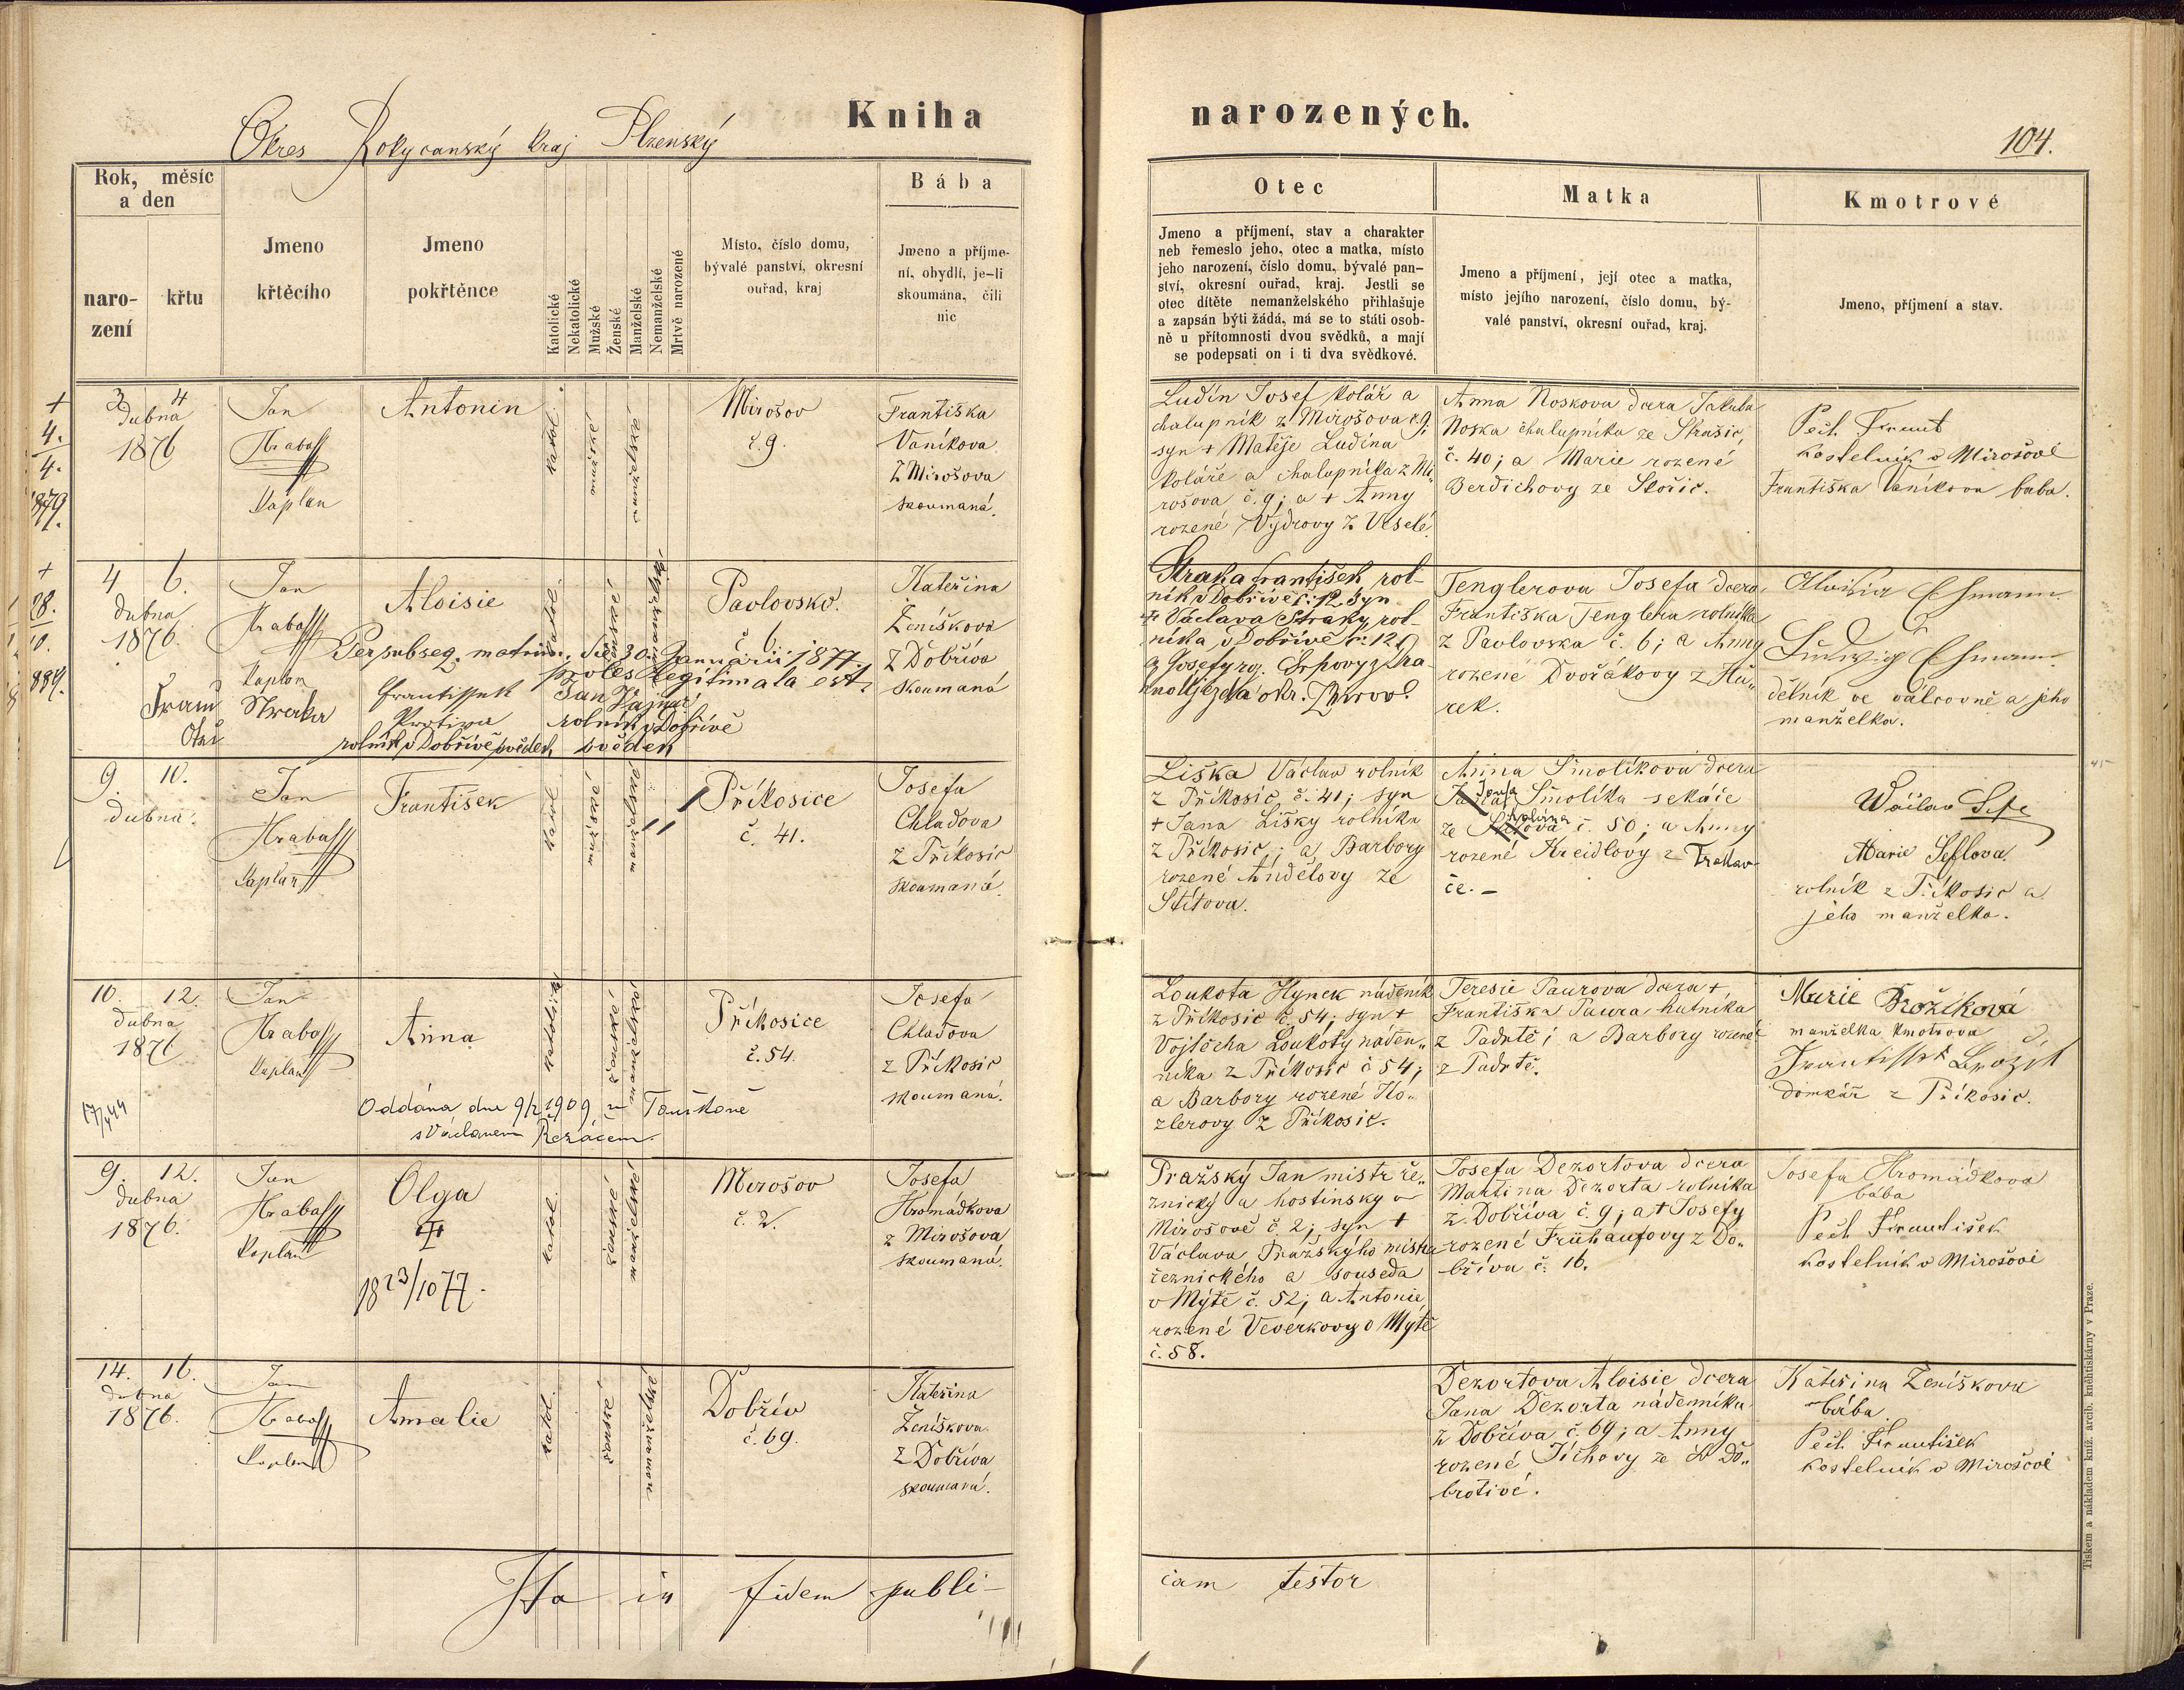 Kniha narozených.
Okres Rokycanský kraj Plzenský
104.
Rok, měsíc
a den
naro-
zení
křtu
Jmeno
křtěcího
Jmeno
pokřtěnce
Katolické
Nekatolické
Mužské
Ženské
Manželské
Nemanželské
Mrtvě narozené
Místo, číslo domu,
bývalé panství, okresní
ouřad, kraj
Bába
Jmeno a příjme-
ní, obydlí, je-li
skoumána, čili
nic
Otec
Jmeno a příjmení, stav a charakter
neb řemeslo jeho, otec a matka, místo
jeho narození, číslo domu, bývalé pan-
ství, okresní ouřad, kraj. Jestli se
otec dítěte nemanželského přihlašuje
a zapsán býti žádá, má se to státi osob-
ně u přítomnosti dvou svědků, a mají
se podepsati on i ti dva svědkové.
Matka
Jmeno a příjmení, její otec a matka,
místo jejího narození, číslo domu, bý-
valé panství, okresní ouřad, kraj.
Kmotrové
Jmeno, příjmení a stav.
+
4.
4.
1879.
3 4
dubna
1876
Jan
Hraba
Kaplan
Antonin
katol.
mužské
manželské
Mirošov
č. 9.
Františka
Vaníkova
z Mirošova
skoumaná.
Ludín Josef kolář a
chalupník z Mirošova č. 9;
syn + Matěje Ludína
koláře a chalupníka z Mi„
rošova č. 9; a + Anny
rozené Vydrovy z Veselé.
Anna Noskova dcera Jakuba
Noska chalupníka ze Strašic,
č. 40; a Marie rozené
Berdichovy ze Skořic.
Pech Frant
kostelník v Mirošově
Františka Vaníkova baba.
+
28.
10.
884.
4 6.
dubna
1876.
Jan
Hraba
Kaplan
Aloisie
katol.
ženské
nemanželské
Pavlovsko.
č 6.
Kateřina
Ženíškova
z Dobřiva
skoumaná
Per subseq. matrim. die 30. Januarii 1877.
proles legitimata est.
Franc Straka
Otec
Frantissek
Protiva
rolník v Dobřívě svědek
Jan
rolník v Dobřívě
svědek
Straka František rol-
ník v Dobřívě č: 12 Syn
+ Václava Straky, rol-
níka v Dobřívě č. 12
Tenglerova Josefa dcera
Františka Tenglera rolníka
z Pavlovska č. 6; a Anny
rozené Dvořákovy z Hů„
rek.
Aloisia Ehmann
Ludwig Ehmann
dělník ve válcovně a jeho
manželka.
9. 10.
dubna.
Jan
Hraba
Kaplan
František
katol
mužské
manželské
Příkosice
č. 41.
Josefa
Chladova
z Příkosic
skoumaná.
Liška Václav rolník
z Příkosic č. 41; syn
+ Jana Lišky rolníka
z Příkosic; a Barbory
rozené Andělovy ze
Stítova.
Anna Smolíkova dcera
Josefa Smolíka sekáče
ze Stítova č. 50; a Anny
rozené Kreidlovy z Trokav-
če. –
Wáclav
Marie Šeflova.
rolník z Příkosic a
jeho manželka.
10. 12.
dubna
1876
Jan
Hraba
Kaplan
Anna
katolická
ženské
manželské
Příkosice
č. 54.
Josefa
Chladova
z Příkosic
skoumaná.
Oddána dne 9/2 1909 v Touškově
s Václavem Řezáčem.
Loukota Hynek nádeník
z Příkosic č. 54; syn +
Vojtěcha Loukoty náden„
níka z Příkosic č 54;
a Barbory rozené Ko„
zlerovy z Příkosic.
Teresie Paurova dcera +
Františka Paura hutníka
z Padrtě; a Barbory rozené
z Padrtě.
Marie Brožíková
manželka kmotrova
Frantisset Brožik
domkář z Příkosic.
9. 12.
dubna
1876.
Jan
Hraba
Kaplan
Olga
18 23/10 77.
katol.
ženské
manželské
Mirošov
č. 2.
Josefa
Hromádkova
z Mirošova
skoumaná.
Pražský Jan mistr ře„
znický a hostinský v
Mirošově č. 2; syn +
Václava Pražského mistra
řeznického a souseda
v Mýtě č. 52; a Antonie
rozené Veverkovy v Mýtě
č. 58.
Josefa Dezortova dcera
Martina Dezorta rolníka
z Dobříva č. 9; a + Josefy
rozené Frühaufovy z Do„
bříva č. 16.
Josefa Hromádkova
bába
Pech František
kostelník v Mirošově
14. 16.
dubna
1876.
Jan
Hraba
Kaplan
Amalie
katol.
ženské
nemanželské
Dobřív
č. 69.
Kateřina
Ženíškova
z Dobříva
skoumaná.
Dezortova Aloisie dcera
Jana Dezorta nádenníka
z Dobříva č. 69; a Anny
rozené Tichovy ze Sv Do„
brotivé.
Kateřina Ženíškova
bába
Pech František
kostelník v Mirošově
Ita in fidem publi-
cam testor
Tiskem a nákladem kníž. arcib. kněhtiskárny v Praze.